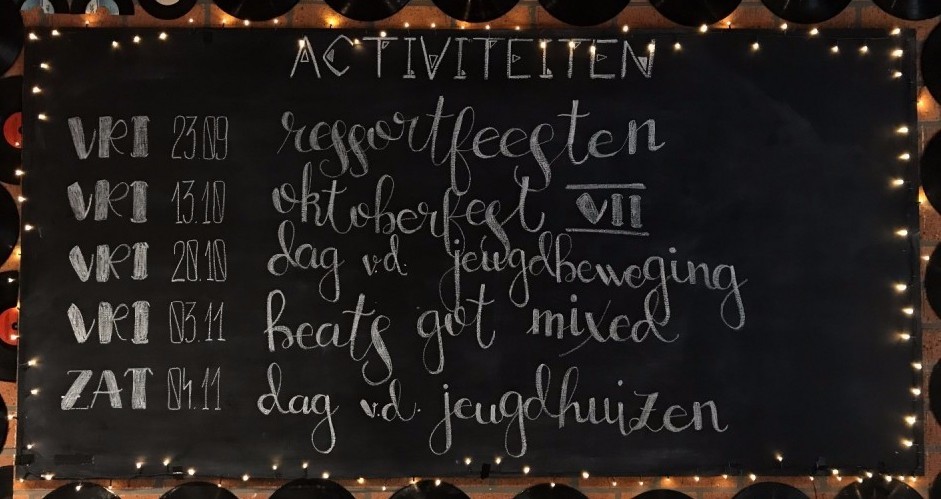 ACTIVITEITEN
VRI 23.09 ressortfeesten
VRI 13.10 oktoberfest VII
VRI 20.10 dag v.d. jeugdbeweging
VRI 03.11 beats got mixed
ZAT 04.11 dag v.d. jeugdhuizen